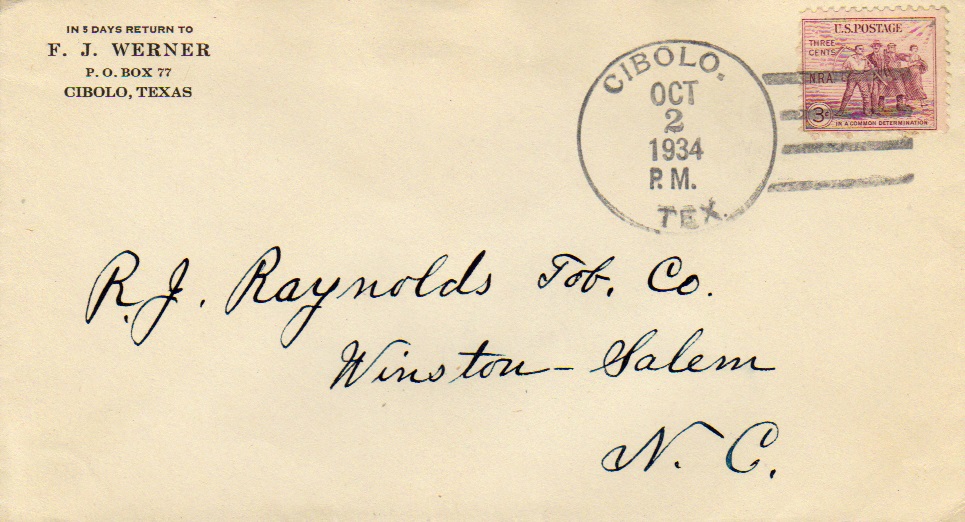 IN 5 DAYS RETURN TO
F. J. WERNER
P. O. BOX 77
CIBOLO, TEXAS
CIBOLO.
OCT
2
1934
P.M.
TEX.
U.S. POSTAGE
THREE
CENTS
NRA
3¢
IN A COMMON DETERMINATION
R. J. Raynolds Tob. Co.
Winston-Salem
N. C.